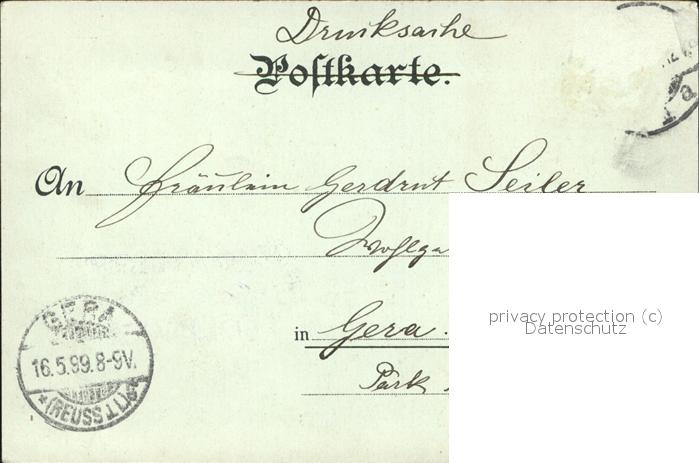 Drucksache
Postkarte.
An Fräulein Gerdrut Seiler
Wohlge
in Gera.
Park
GERA
16.5.99.8-9V.
*(REUSS J.L.)a*
privacy protection (c)
Datenschutz